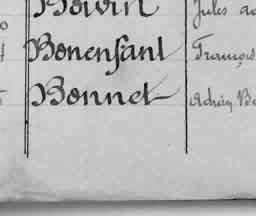 Boivin Jules
Bonenfant François
Bonnet Adrien